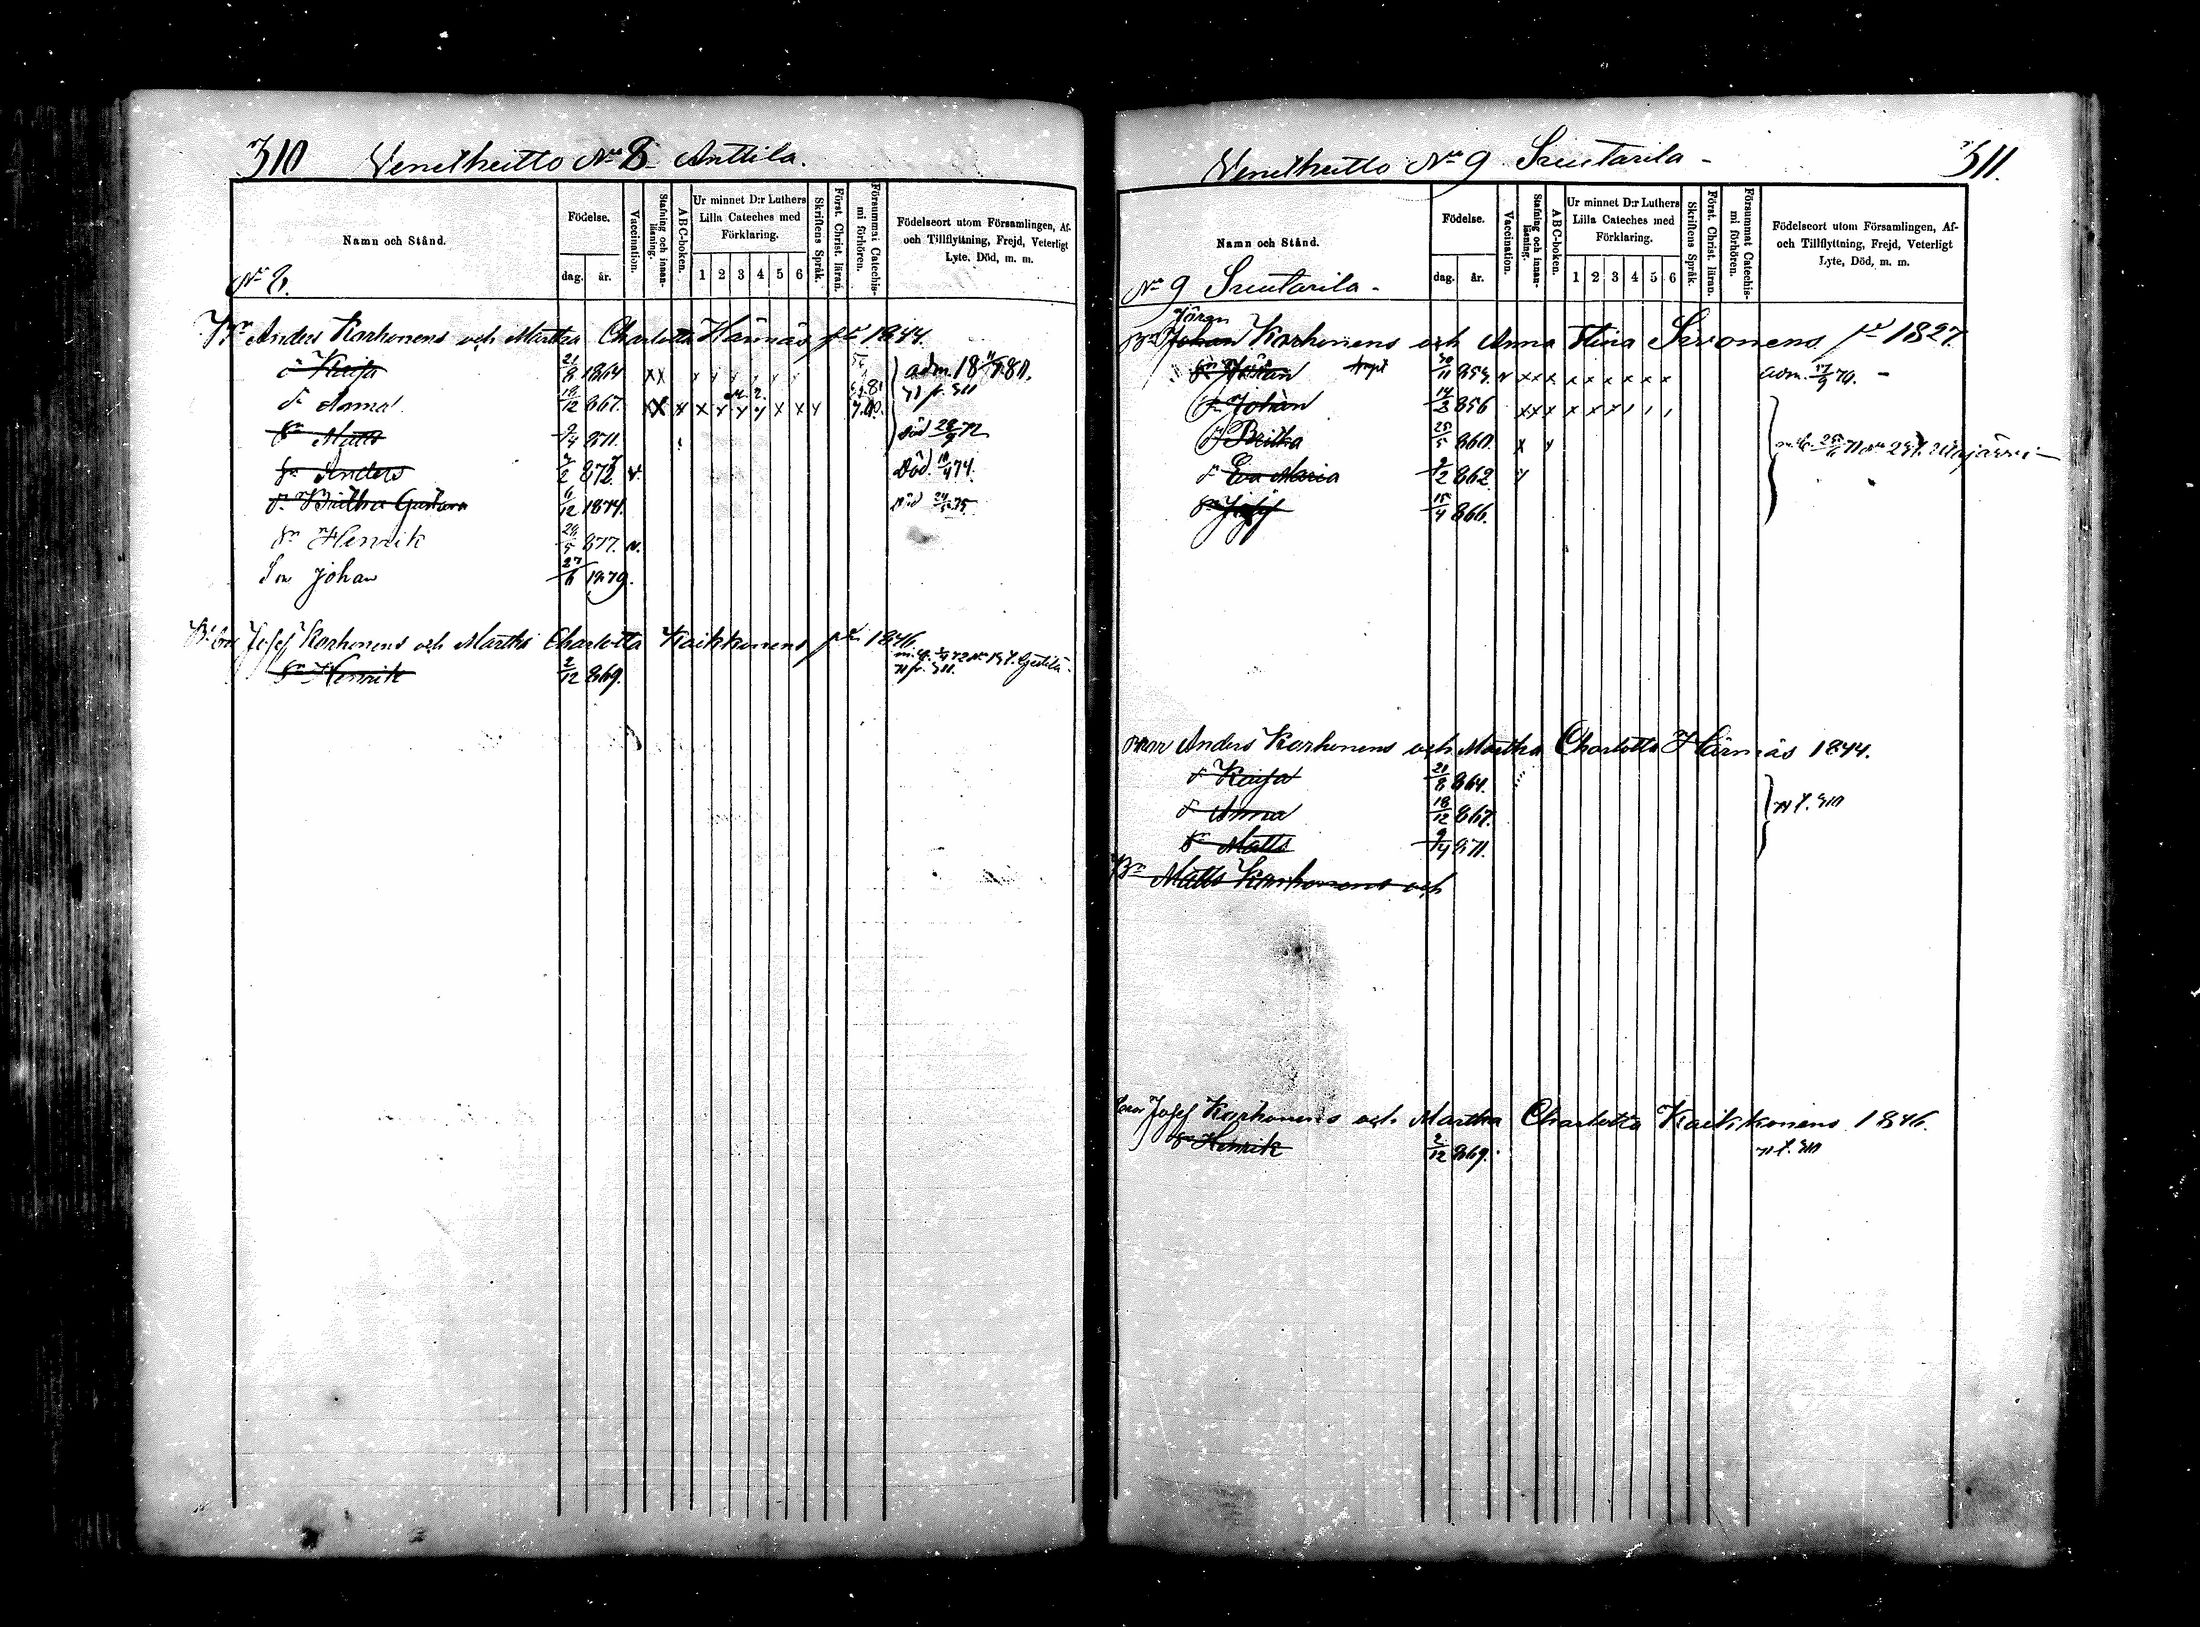 310 Venetheitto No 8 Anttila.
Namn och Stånd.
Födelse.
dag. år.
Vaccination.
Stafning och innanläsning.
ABC-boken.
Ur minnet D:r Luthers
Lilla Cateches med
Förklaring.
1 2 3 4 5 6
Skriftens Språk.
Först. Christ. läran.
Försummat Catechismi förhören.
Födelseort utom Församlingen, Af-
och Tillflyttning, Frejd, Veterligt
Lyte, Död, m. m.
No 8.
Anders Karhonens och Martha Charlotta Härmäs 1844.
d. Kaisa 21/8 1864 adm. 18 80.
d. Anna 18/12 867. fr. 311
sn Matts 9/4 871. död 28 72
sn Anders 2 Död. 74.
d. Britha Gustava 6/12 1874. död 75
sn Henrik 5 877. v.
Son Johan 27/6 1879.
Josef Karhonens och Martha Charlotta Kaikkonens 1846
sn Henrik 2/12 869. fr. 311.
Venetheitto No 9 Suutarila - 311.
Namn och Stånd.
Födelse.
dag. år.
Vaccination.
Stafning och innanläsning.
ABC-boken.
Ur minnet D:r Luthers
Lilla Cateches med
Förklaring.
1 2 3 4 5 6
Skriftens Språk.
Först. Christ. läran.
Försummat Catechismi förhören.
Födelseort utom Församlingen, Af-
och Tillflyttning, Frejd, Veterligt
Lyte, Död, m. m.
No 9 Suutarila -
Jöran
Johan Karhonens och Anna Stina Sironens 1827.
30/11 853. adm. 70. -
Johan 14/3 856
d. Britha 25/5 860.
d. Eva Maria 2 862
sn Josef 15/4 866.
Anders Karhonens och Martha Charlotta Härmäs 1844.
d. Kaisa 21/8 864.
d. Anna 18/12 867. 71 f. 310
sn Matts 9/4 871.
Matts Karhonens och
Josef Karhonens och Martha Charlotta Kaikkonens 1846.
sn Henrik 2/12 869. 71 f. 310